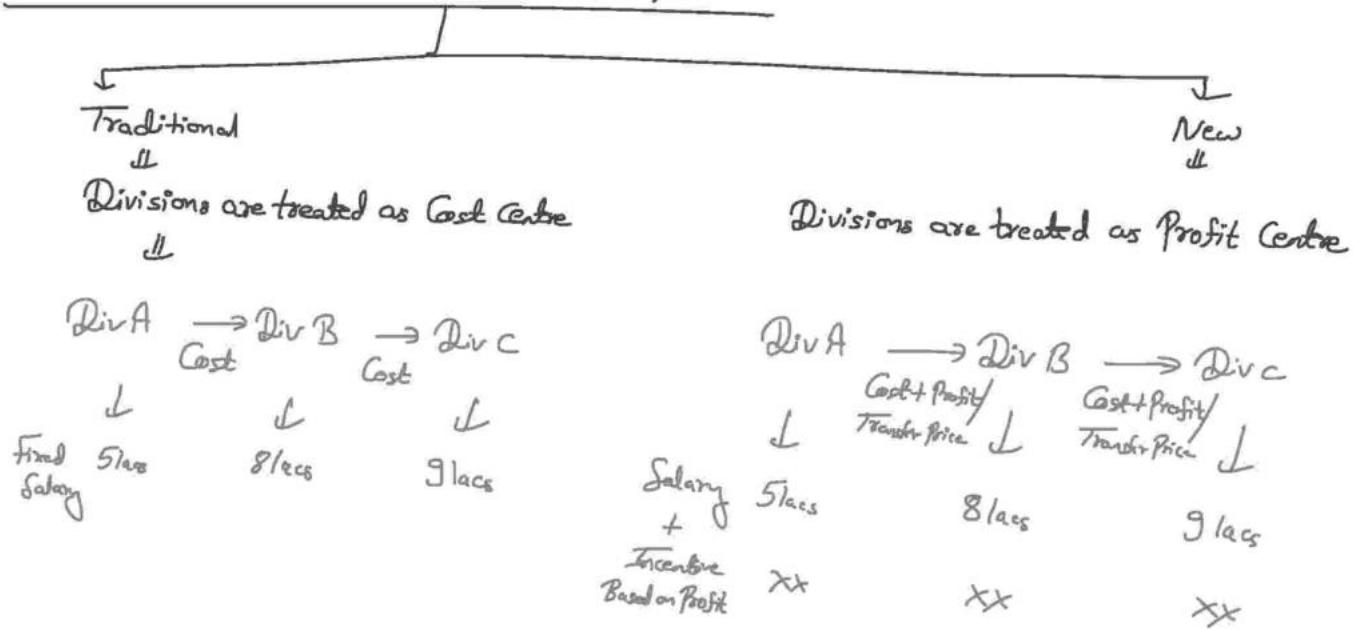 Traditional
Divisions are treated as Cost Centre
Div A → Div B → Div C
Cost Cost
Fixed Salary 5 lacs 8 lacs 9 lacs
New
Divisions are treated as Profit Centre
Div A → Div B → Div C
Cost + Profit/ Cost + Profit/
Transfer Price Transfer Price
Salary 5 lacs 8 lacs 9 lacs
+
Incentive xx xx xx
Based on Profit